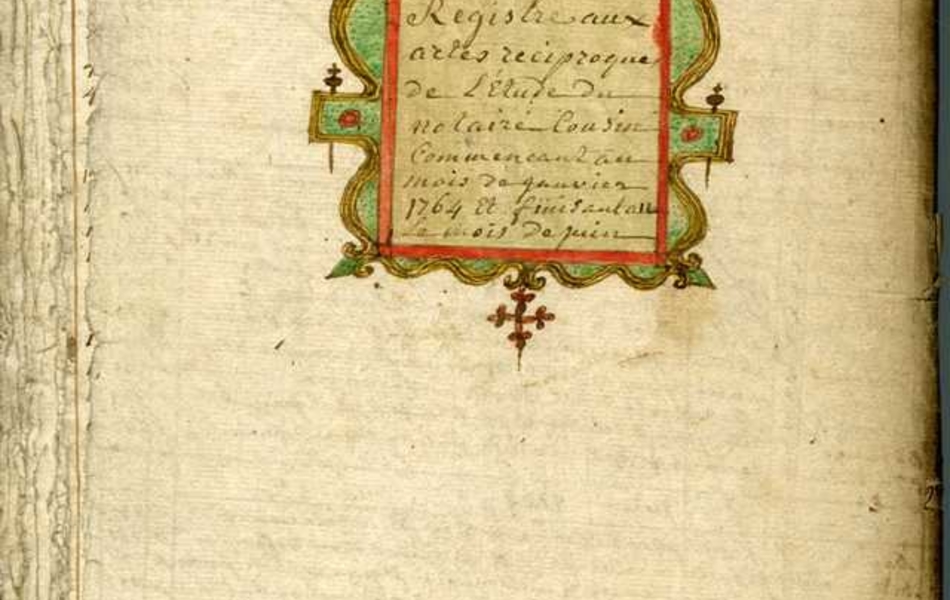 Registre aux
actes reciproque
de L'Etude du
notaire Cousin
Commencant au
mois de janvier
1764 Et finisant au
Le mois de juin
2